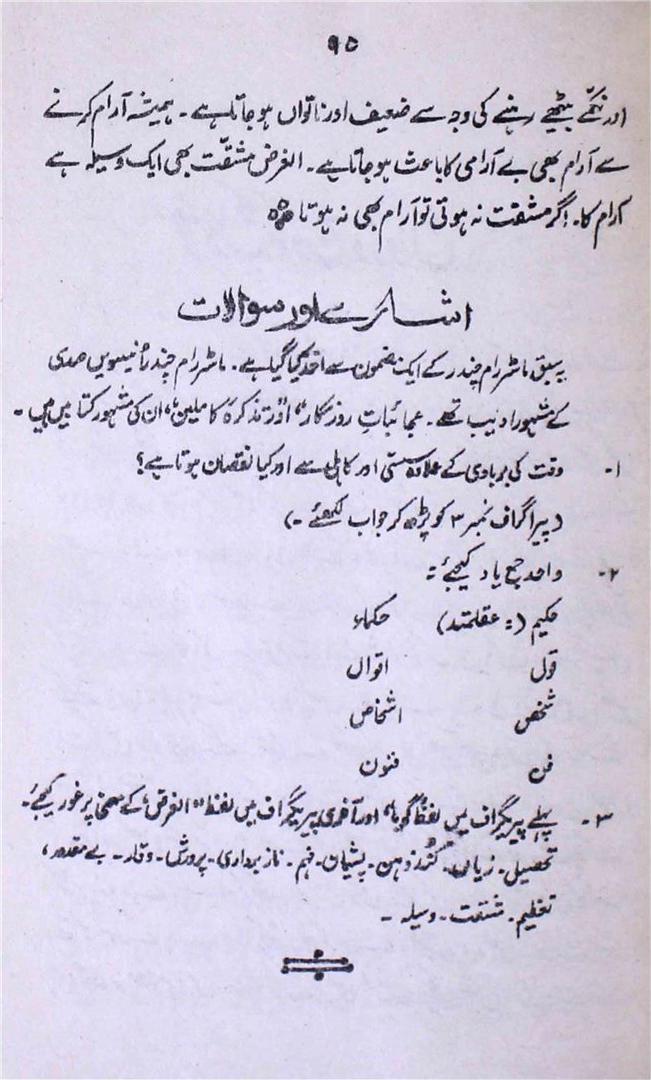 ۹۵
اور نکمّے بیٹھے رہنے کی وجہ سے ضعیف اور ناتواں ہوجاتا ہے۔ ہمیشہ آرام کرنے
سے آرام بھی بے آرامی کا باعث ہوجاتا ہے۔ الغرض مشقّت بھی ایک وسیلہ ہے
آرام کا۔ اگر مشقت نہ ہوتی تو آرام بھی نہ ہوتا
اشارے اور سوالات
یہ سبق ماسٹر رام چندر کے ایک مضمون سے اخذ کیا گیا ہے۔ ماسٹر رام چندر انیسویں صدی
کے مشہور ادیب تھے۔ عجائباتِ روزگار" اور "تذکرۃ کاملین" ان کی مشہور کتابیں ہیں۔
۱۔ وقت کی بربادی کے علاوہ سستی اور کاہلی سے اور کیا نقصان ہوتا ہے؟
(پیراگراف نمبر ۳ کو پڑھ کر جواب لکھئے۔)
۲۔ واحد جمع یاد کیجئے۔
حکیم (= عقلمند) حکماء
قول اقوال
شخص اشخاص
فن فنون
۳۔ پہلے پیرگراف میں لفظ "گویا" اور آخری پیرگراف میں لفظ "الغرض" کے معنی پر غور کیجئے۔
تحصیل۔ زیاں۔ کُند ذہن۔ پشیمان۔ فہم۔ ناز برداری۔ پرورش۔ وقار۔ بے مقدور،
تعظیم۔ مشقت۔ وسیلہ۔